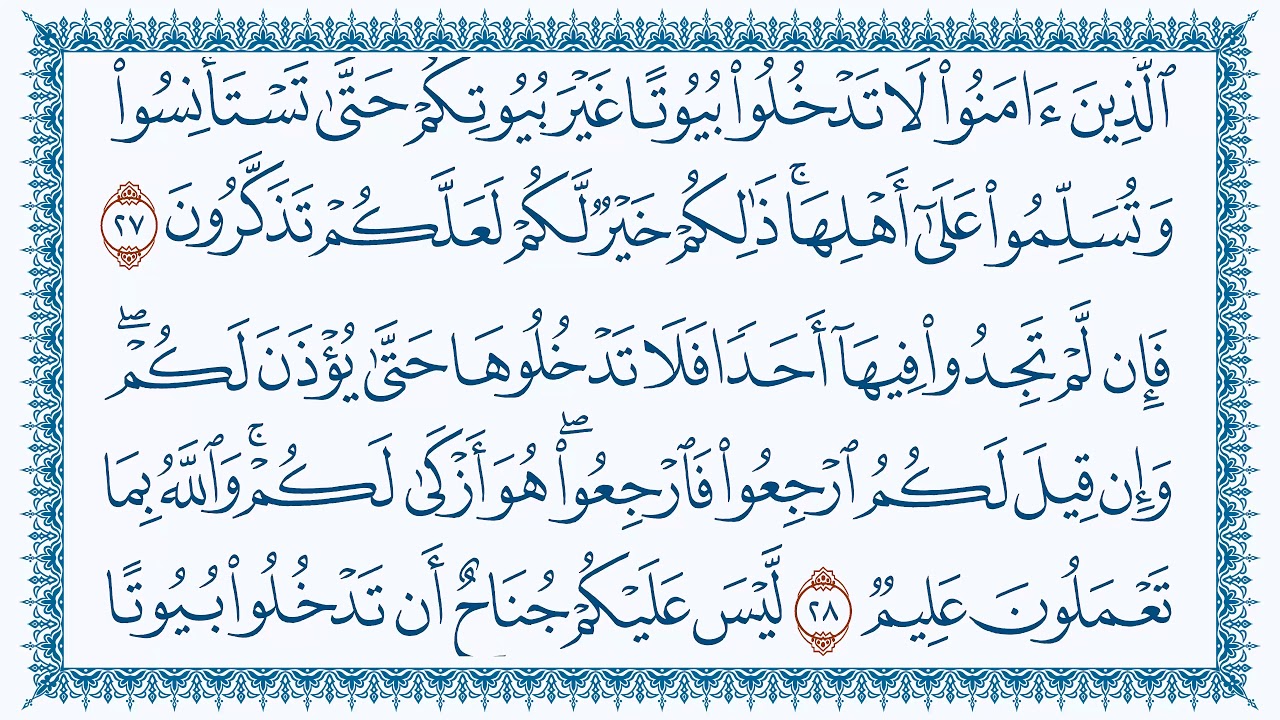 ٱلَّذِينَ ءَامَنُوا۟ لَا تَدْخُلُوا۟ بُيُوتًا غَيْرَ بُيُوتِكُمْ حَتَّىٰ تَسْتَأْنِسُوا۟
وَتُسَلِّمُوا۟ عَلَىٰٓ أَهْلِهَا ۚ ذَٰلِكُمْ خَيْرٌ لَّكُمْ لَعَلَّكُمْ تَذَكَّرُونَ ٢٧
فَإِن لَّمْ تَجِدُوا۟ فِيهَآ أَحَدًا فَلَا تَدْخُلُوهَا حَتَّىٰ يُؤْذَنَ لَكُمْ ۖ
وَإِن قِيلَ لَكُمُ ٱرْجِعُوا۟ فَٱرْجِعُوا۟ ۖ هُوَ أَزْكَىٰ لَكُمْ ۚ وَٱللَّهُ بِمَا
تَعْمَلُونَ عَلِيمٌ ٢٨ لَّيْسَ عَلَيْكُمْ جُنَاحٌ أَن تَدْخُلُوا۟ بُيُوتًا